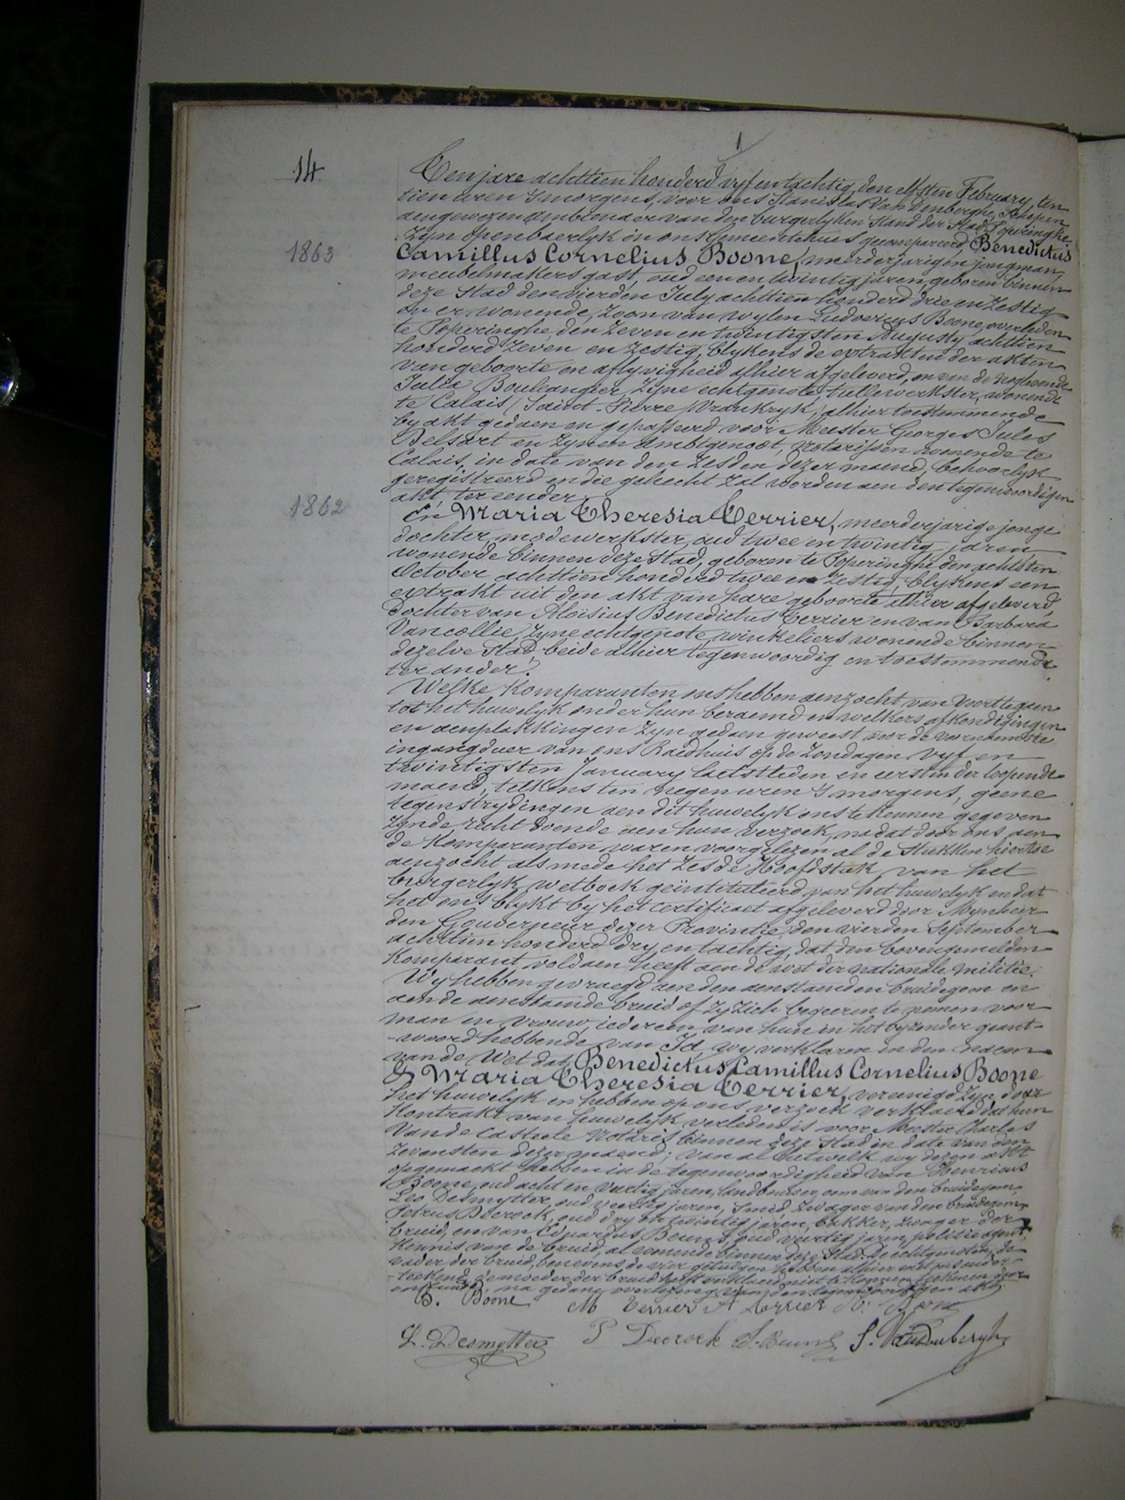 14
Ten jare achttien honderd vyf en tachtig, den elfsten February, ten
tien uren 's morgens, voor ons Stanislas Vandenberghe, Schepen
aengewezen Ambtenaer van den burgerlyken stand der Stad Poperinghe,
Zyn openbaerlyk in ons Gemeentehuis gecompareerd Benedictus
1863
Camillus Cornelius Boone, meerderjarigen jongman,
meubelmakers gast, oud een en twintig jaren, geboren binnen
deze Stad den vierden July achttien honderd drie en zestig
en er wonende, zoon van wylen Ludovicus Boone, overleden
te Poperinghe, den zeven en twintigsten Augusty achttien
honderd zeven en zestig, blykens de extrakten der akten
van geboorte en aflyvigheid alhier afgeleverd, en van de
Julia Boulanger zyne echtgenote, tullewerkster, wonende
te Calais, Saint-Pierre, Vrankryk, alhier toestemmende
by akt gedaen en gepasseerd voor Meester Georges Jules
Delsart en zynen Ambtgenoot, notarissen wonende te
Calais, in date van den zesden dezer maend, behoorlyk
geregistreerd en die gehecht zal worden aen den tegenwoordigen
akt, ter eender
1862
En Maria Theresia Terrier, meerderjarige jonge
dochter, modewerkster, oud twee en twintig jaren
wonende binnen deze Stad, geboren te Poperinghe den achtsten
October achttien honderd twee en zestig, blykens een
extrakt uit den akt van hare geboorte alhier afgeleverd,
dochter van Aloisius Benedictus Terrier en van Barbara
Vancœllie, zyne echtgenote, winkeliers wonende binnen
dezelve Stad, beide alhier tegenwoordig en toestemmende
ter ander.
Welke Komparanten ons hebben aenzocht van voort te gaen
tot het huwelyk onder hun beraemd en welkers afkondigingen
en aenplakkingen zyn gedaen geweest voor de voornaemste
ingangdeur van ons Raedhuis op de zondagen vyf en
twintigsten January laetstleden en eersten der loopende
maend, telkens ten negen uren 's morgens, geene
tegenstrydingen aen dit huwelyk ons te kennen gegeven
zynde, recht doende aen hun verzoek, na dat door ons aen
de Komparanten waren voorgelezen al de stukken hiertoe
aenzocht als mede het zesde Hoofdstuk van het
burgerlyk wetboek geïntituleerd van het huwelyk en dat
het ons blykt by het certificaet afgeleverd door Mynheer
den Gouverneur dezer Provintie, den vierden September
achttien honderd dry en tachtig, dat den bovengemelden
Komparant voldaen heeft aen de wet der nationale militie.
Wy hebben gevraegd aen den aenstaenden bruidegom en
aen de aenstaende bruid of zy zich begeeren te nemen voor
man en vrouw, iedereen van hun in het byzonder geant-
-woord hebbende van Ja, wy verklaren in den naem
van de Wet dat Benedictus Camillus Cornelius Boone
& Maria Theresia Terrier, vereenigd zyn door
het huwelyk en hebben op ons verzoek verklaerd dat hun
Kontrakt van huwelyk verleden is voor Meester Charles
Van de Casteele Notaris binnen deze Stad in date van den
zevensten dezer maend; van al hetwelk wy dezen akt
opgemaekt hebben in de tegenwoordigheid van Henricus
Boone, oud acht en veertig jaren, landbouwer, oom van den bruidegom,
Leo Desmytter, oud veertig jaren, smid, zwager van den bruidegom,
Petrus oud dry en twintig jaren, bakker, zwager der
bruid, en van Eduardus Beuns, oud veertig jaren, politie agent
Kennis van de bruid, al wonende binnen deze Stad. De echtgenoten, de
vader der bruid, benevens de vier getuigen hebben alhier met ons onder-
-teekend, de moeder der bruid heeft verklaerd niet te konnen teekenen door
na gedaen voorlezing van den tegenwoordigen akt.
B. Boone M Terrier A Terrier H. Boone
L. Desmytter P E. Beuns S. Vandenberghe